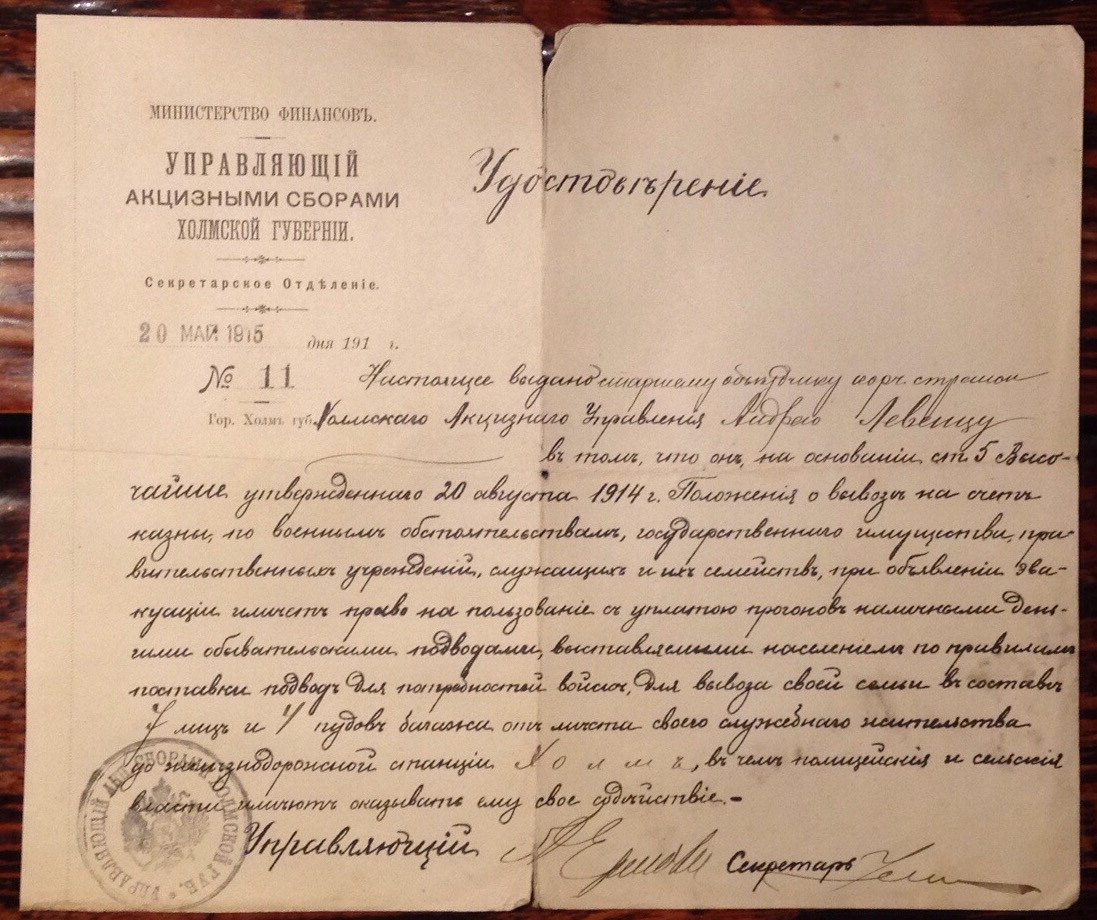 МИНИСТЕРСТВО ФИНАНСОВЪ.
УПРАВЛЯЮЩІЙ
АКЦИЗНЫМИ СБОРАМИ
ХОЛМСКОЙ ГУБЕРНІИ.
Секретарское Отдѣленіе.
20 МАЙ 1915 дня 191 г.
№ 11
Гор. Холмъ губ.
Удостовѣреніе
Настоящее выдано старшему объѣздчику корч. стражи
Холмскаго Акцизнаго Управленія Андрею Левенцу
въ томъ, что онъ, на основаніи ст. 5 Высо-
чайше утвержденнаго 20 августа 1914 г. Положенія о вывозѣ на счетъ
казны, по военнымъ обстоятельствамъ, государственнаго имущества, пра-
вительственныхъ учрежденій, служащихъ и ихъ семействъ, при объявленіи эва-
куаціи имѣетъ право на пользованіе съ уплатою прогоновъ наличными день-
гами обывательскими подводами, выставляемыми населеніемъ по правиламъ
поставки подводъ для потребностей войскъ, для вывоза своей семьи въ составѣ
7 лицъ и пудовъ багажа отъ мѣста своего служебнаго жительства
до желѣзнодорожной станціи Холмъ, въ чемъ полицейскія и сельскія
власти имѣютъ оказывать ему свое содѣйствіе.-
Управляющій Секретарь
УПРАВЛЯЮЩІЙ АКЦ. СБОРАМИ ХОЛМСКОЙ ГУБ.